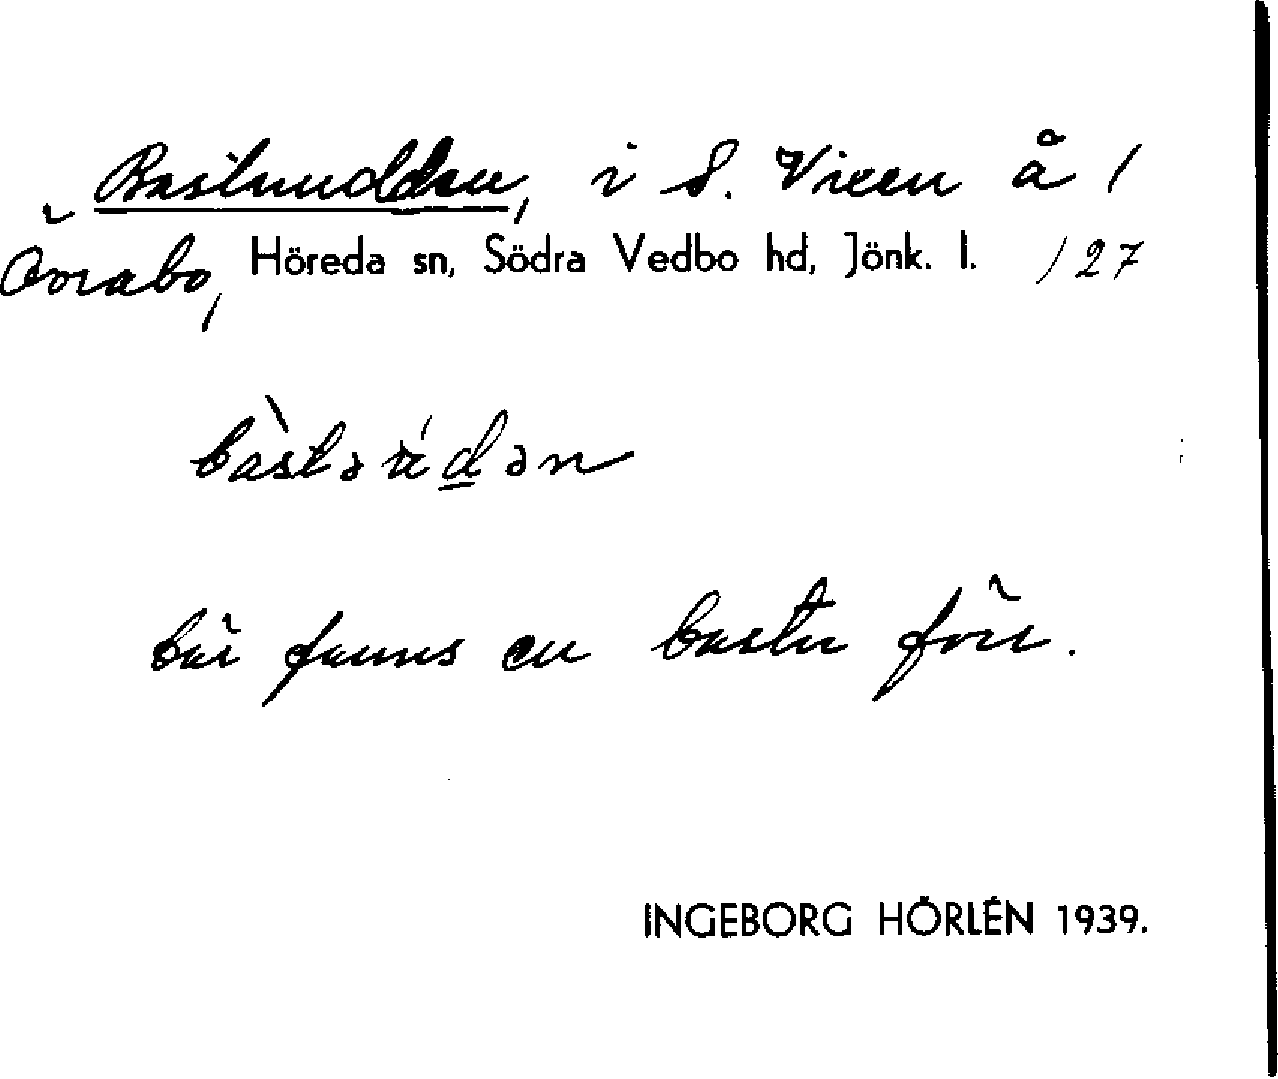 Bastuudden, i S. Vixen å /
Örrabo, Höreda sn, Södra Vedbo hd, Jönk. l. /27
där fanns en bastu förr.
INGEBORG HÖRLÉN 1939.